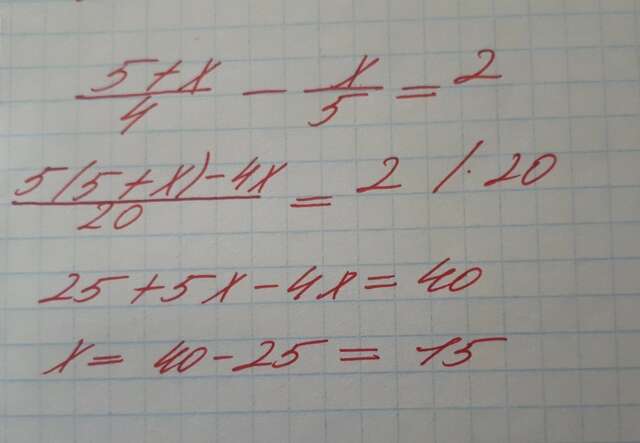 (5+x)/4 - x/5 = 2
(5(5+x)-4x)/20 = 2 /·20
25+5x-4x=40
x= 40-25 = 15